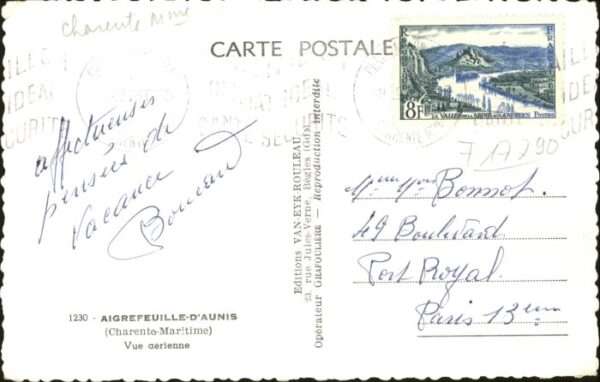 Charente Mme
CARTE POSTALE
8F
FRANCE
LA VALLÉE DE LA SEINE AUX ANDELYS Postes
7A790
affectueuses
pensées de
Vacance
Mme Mr Bonnot.
49 Boulevard
Port Royal.
Paris 13eme
Editions VAN-EYK-ROULEAU
23, rue Jules-Verne, Bègles (Gde)
Opérateur GRAFOULIÈRE — Reproduction Interdite
1230 - AIGREFEUILLE-D'AUNIS
(Charente-Maritime)
Vue aérienne